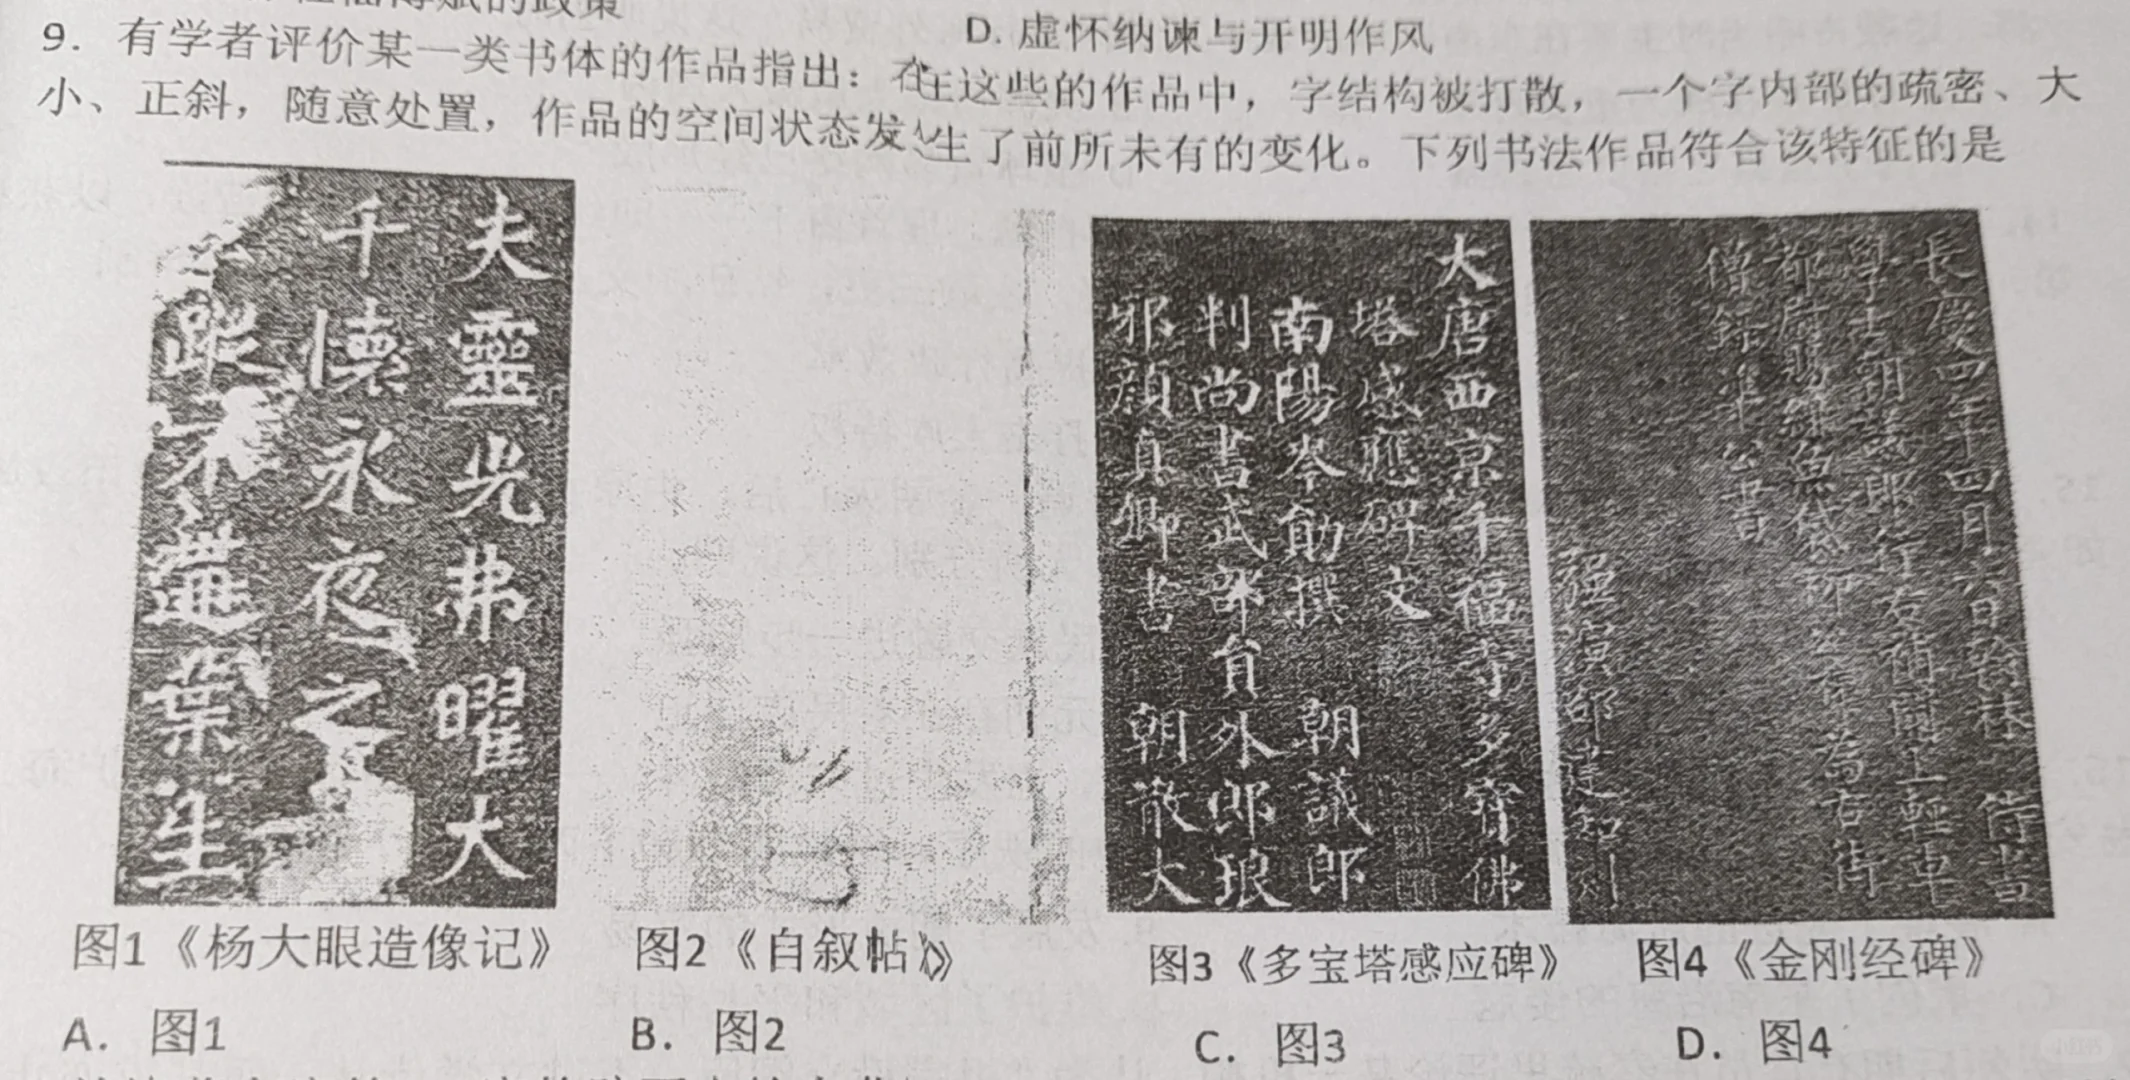 D. 虚怀纳谏与开明作风
9. 有学者评价某一类书体的作品指出：在这些的作品中，字结构被打散，一个字内部的疏密、大
小、正斜，随意处置，作品的空间状态发生了前所未有的变化。下列书法作品符合该特征的是
夫靈光弗曜大
千懐永夜之
葉生
大唐西京千福寺多寶佛
塔感應碑文
南陽岑勛撰 朝議郎
判尚書武部員外郎琅
邪顔真卿書 朝散大
图1《杨大眼造像记》
图2《自叙帖》
图3《多宝塔感应碑》
图4《金刚经碑》
A. 图1
B. 图2
C. 图3
D. 图4